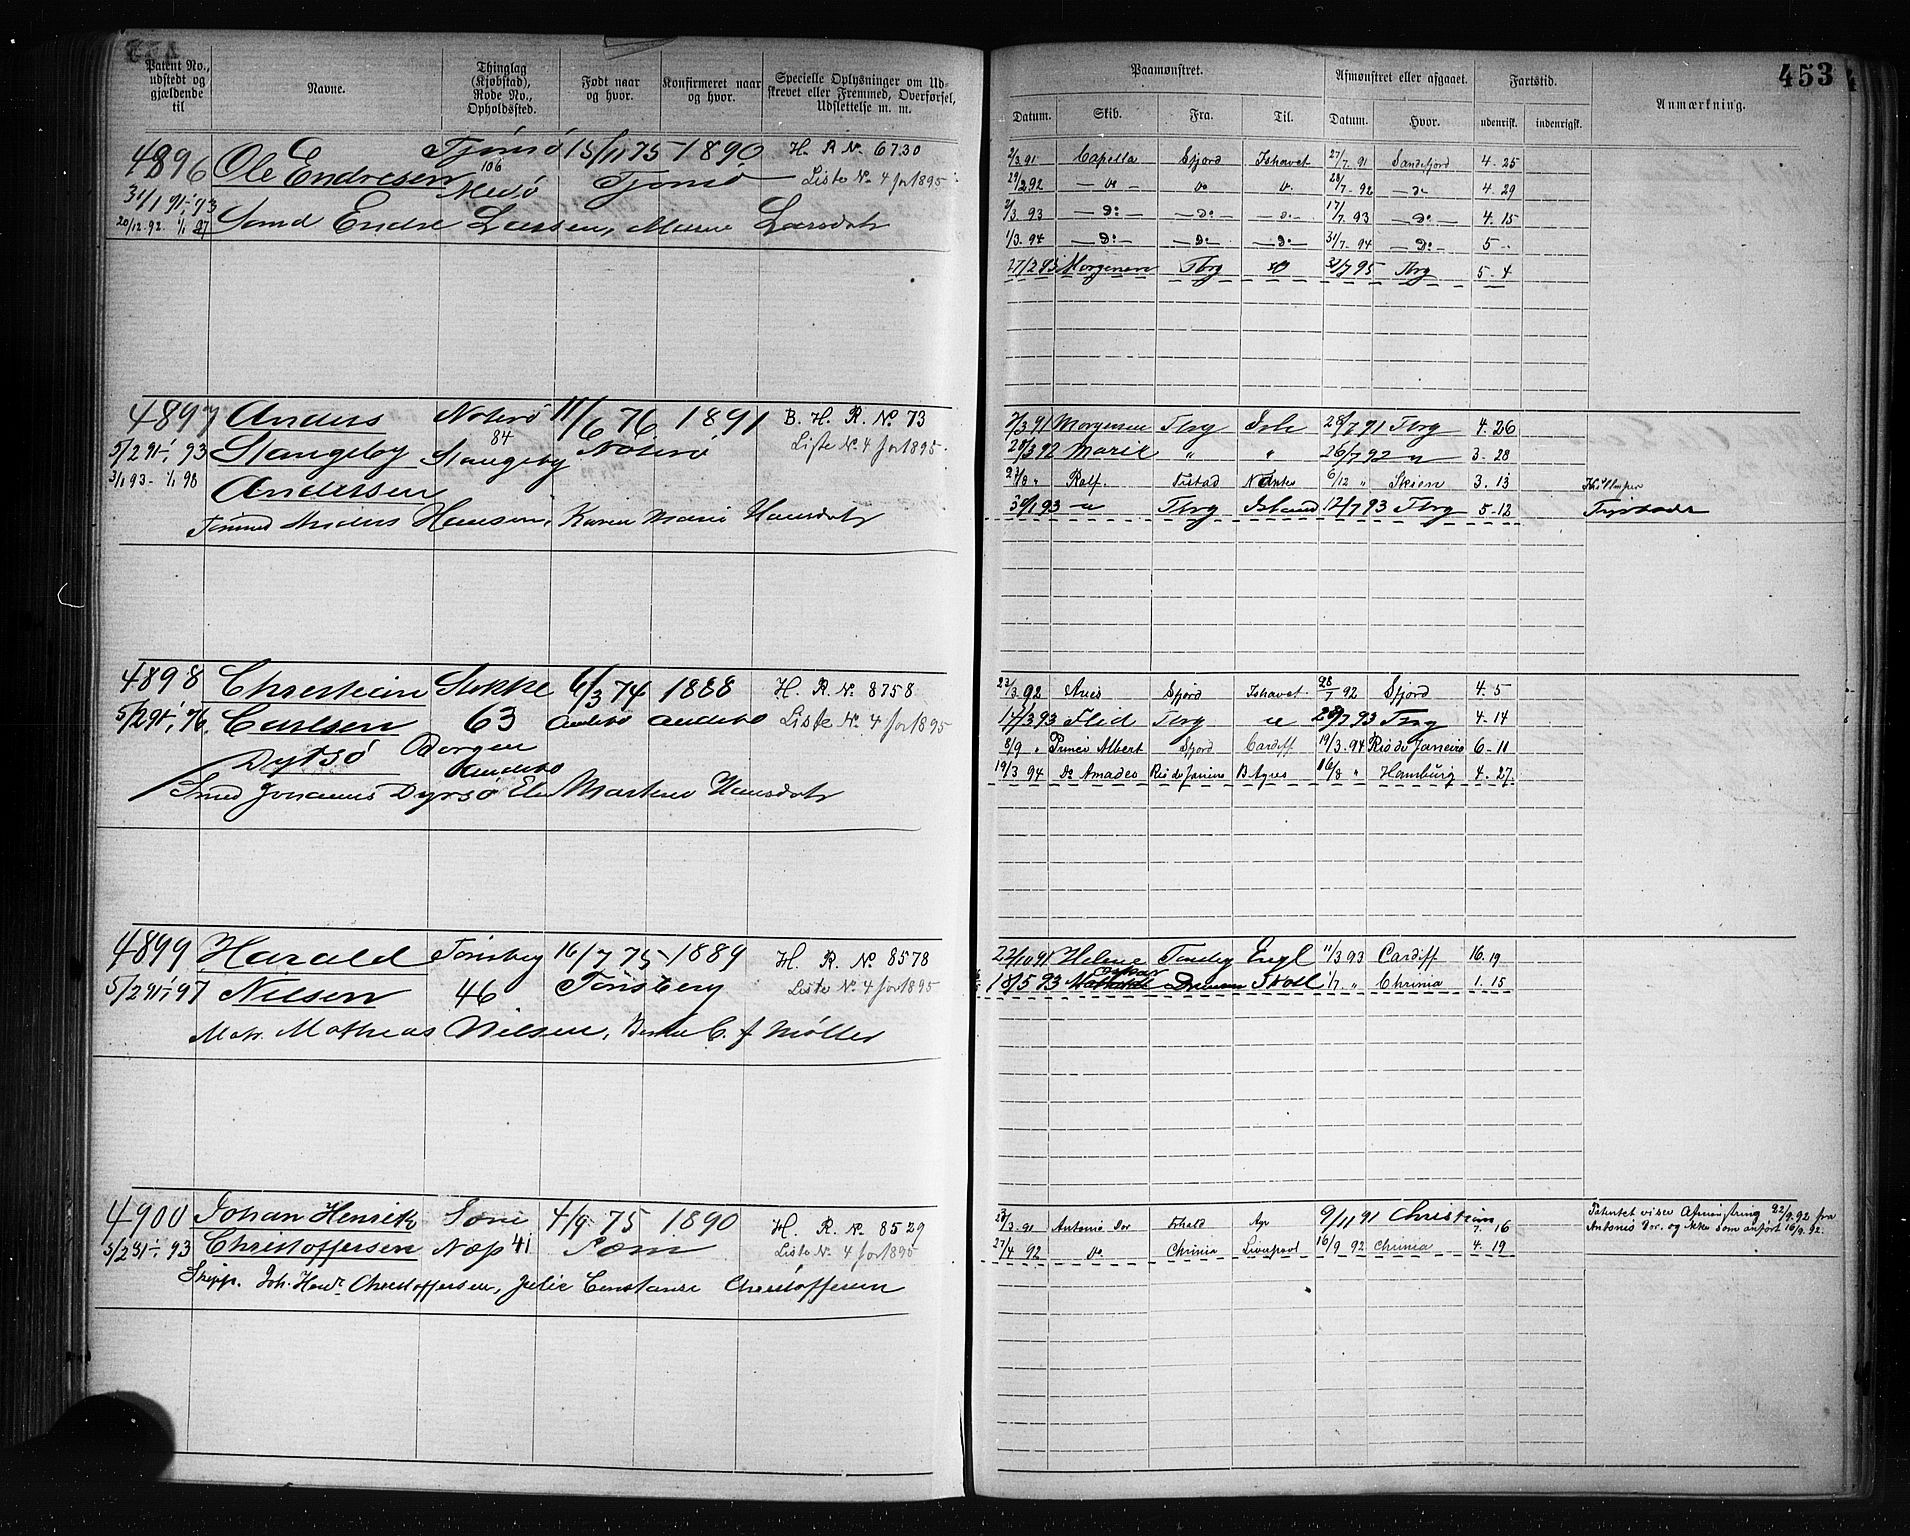 453
Patent No., udstedt og gjældende til
Navne.
Thinglag (Kjøbstad), Rode No., Opholdssted.
Født naar og hvor.
Konfirmeret naar og hvor.
Specielle Oplysninger om Udskrevet eller Fremmed, Overførsel, Udslettelse m. m.
Paamønstret.
Afmønstret eller afgaaet.
Fartstid.
Anmærkning.
Datum. Skib. Fra. Til. Datum. Hvor. udenrisk. indenrigsk.
4896 Ole Endresen Tjømø 15/11 75 1890 H. R. No. 6730
106 Tjømø Liste No. 4 for 1895
31/1 91-1/1 93
20/12 92. 1/1 97 Endre Larsen, Larsdatr
2/3 91 Capella Sfjord Ishavet 27/7 91 Sandefjord 4. 25
29/2 92 — Do — Do Do 28/7 92 — Do 4. 29
2/3 93 — Do — — Do — — Do 17/7 93 — Do — 4. 15
1/3 94 — Do — — Do — — Do — 31/7 94 — Do — 5 -
27/2 95 Morgenen Tbrg Do 31/7 95 Tbrg 5. 4
4897 Anders Nøterø 11/6 76 1891 B. H. R. No. 73
84 Liste No. 4 for 1895
5/2 91-1/1 93 Stangeby Stangeby Nøterø
3/1 93 - 1/1 98 Andersen
Tømmd Anders Hansen, Karen Marie Hansdatr
2/3 91 Morgenen Tbrg 28/7 91 Tbrg 4. 26
28/3 92 Marie " " 26/7 92 " 3. 28
Rolf. Fr.stad 6/12 " Skien 3. 13
93 " Tbrg Island 12/7 93 Tbrg 5-12
4898 Christian Stokke 6/3 74 1888 H. R. No. 8758
5/2 91-1/1 96. Carlsen 63 Andebo Andebo Liste No. 4 for 1895
Dyrsø Borgen
Andebo
Smed Johannes Dyrsø Martine Hansdatr
23/3 92 Aries Sfjord Ishavet 28/7 92 Sfjord 4. 5
93 Flid Tbrg " 28/7 93 Tbrg 4. 14
8/9 " Prince Albert Sfjord Cardiff 19/3. 94 Rio de Janeiro 6. 11
19/3 94 Do Amadeo Rio de Janeiro B Ayres 16/8 " Hamburg 4. 27.
4899 Harald Tønsberg 16/7 75 1889 H. R. No. 8578
5/2 91-1/1 97 Nilsen 46 Tønsberg Liste No. 4 for 1895
Matr. Mathias Nilsen, C. f Møller
22/10 91 Helene Tønsbg Engl 11/3 93 Cardiff 16. 19
18/5 93 Oskar Drammen Skotl 1/7 " Chrinia 1. 15
4900 Johan Henrik Sem 4/9 75 1890 H. R. No. 8529
5/2 91-1/1 93 Christoffersen Næp 41 Sem Liste No. 4 for 1895
Skipp. Joh. Henr. Christoffersen, Julie Constanse Christoffersen
28/3. 91 Antonie Dor Ayr 9/11 91 7. 16
27/4 92 Do Chrinia Liverpool 16/9 92 Chrinia 4. 19
Patentet viser Afmønstring 22/9. 92 fra
Antonie Dor. og ikke som anført 16/9. 92.